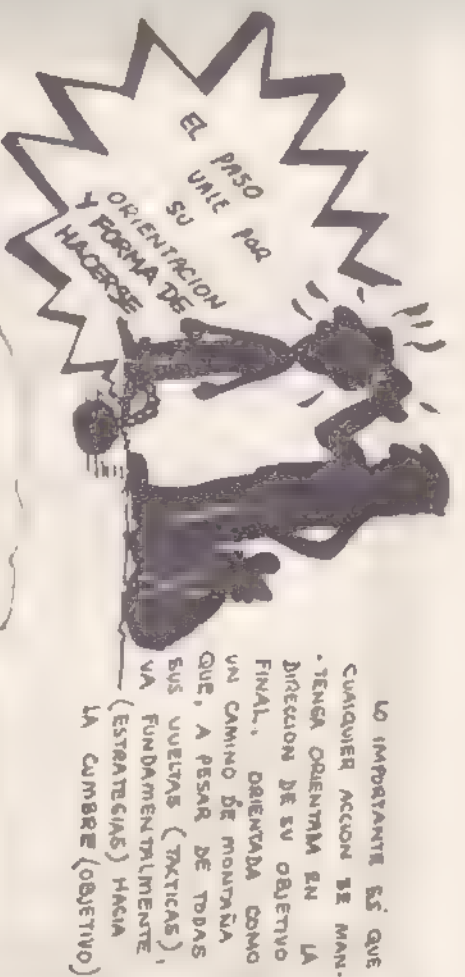 EL PASO
VALE POR
SU
ORIENTACION
Y FORMA DE
HACERSE
LO IMPORTANTE ES QUE
CUALQUIER ACCION SE MAN-
TENGA ORIENTADA EN LA
DIRECCION DE SU OBJETIVO
FINAL. ORIENTADA COMO
UN CAMINO DE MONTAÑA
QUE, A PESAR DE TODAS
SUS VUELTAS (TACTICAS),
VA FUNDAMENTALMENTE
(ESTRATEGIAS) HACIA
LA CUMBRE (OBJETIVO)